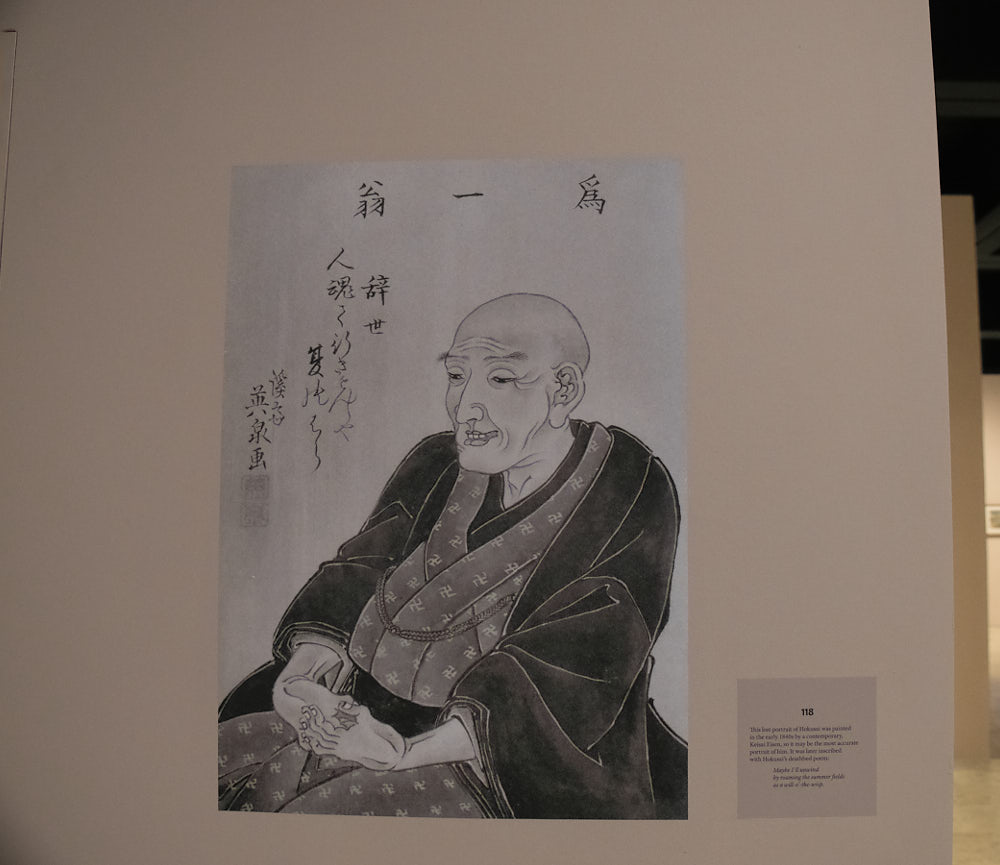 爲一翁
辞世
人魂て行きさんしや
夏のはら
溪斎
英泉画
118
This lost portrait of Hokusai was painted
in the early 1840s by a contemporary,
Keisai Eisen, so it may be the most accurate
portrait of him. It was later inscribed
with Hokusai's deathbed poem:
Maybe I'll unwind
by roaming the summer fields
as a will-o'-the-wisp.